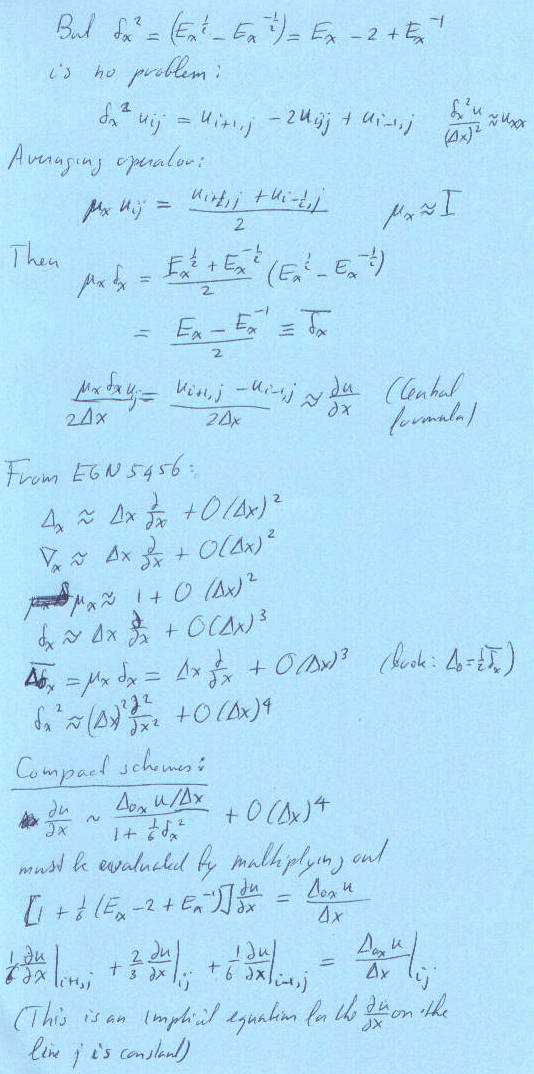 But δₓ² = (Eₓ^½ − Eₓ^−½) = Eₓ − 2 + Eₓ⁻¹
is no problem:
δₓ² u_ij = u_i+1,j − 2u_ij + u_i−1,j   δₓ²u/(Δx)² ≈ u_xx
Averaging operator:
μₓ u_ij = (u_i+½,j + u_i−½,j)/2   μₓ ≈ I
Then
μₓ δₓ = (Eₓ^½ + Eₓ^−½)/2 (Eₓ^½ − Eₓ^−½)
= (Eₓ − Eₓ⁻¹)/2 ≡ δ̅ₓ
μₓ δₓ u_ij/2Δx = (u_i+1,j − u_i−1,j)/2Δx ≈ ∂u/∂x (Central formula)
From EGN 5456:
Δₓ ≈ Δx ∂/∂x + O(Δx)²
∇ₓ ≈ Δx ∂/∂x + O(Δx)²
μₓ ≈ 1 + O(Δx)²
δₓ ≈ Δx ∂/∂x + O(Δx)³
δ̅ₓ = μₓ δₓ = Δx ∂/∂x + O(Δx)³ (book: Δ₀ = ½ δ̅ₓ)
δₓ² ≈ (Δx)² ∂²/∂x² + O(Δx)⁴
Compact schemes:
∂u/∂x ~ (Δ₀ₓ u/Δx)/(1 + ⅙ δₓ²) + O(Δx)⁴
must be evaluated by multiplying out
[1 + ⅙ (Eₓ − 2 + Eₓ⁻¹)] ∂u/∂x = Δ₀ₓ u/Δx
⅙ ∂u/∂x|_i+1,j + ⅔ ∂u/∂x|_ij + ⅙ ∂u/∂x|_i−1,j = Δ₀ₓ u/Δx|_ij
(This is an implicit equation for the ∂u/∂x on the
line j is constant)